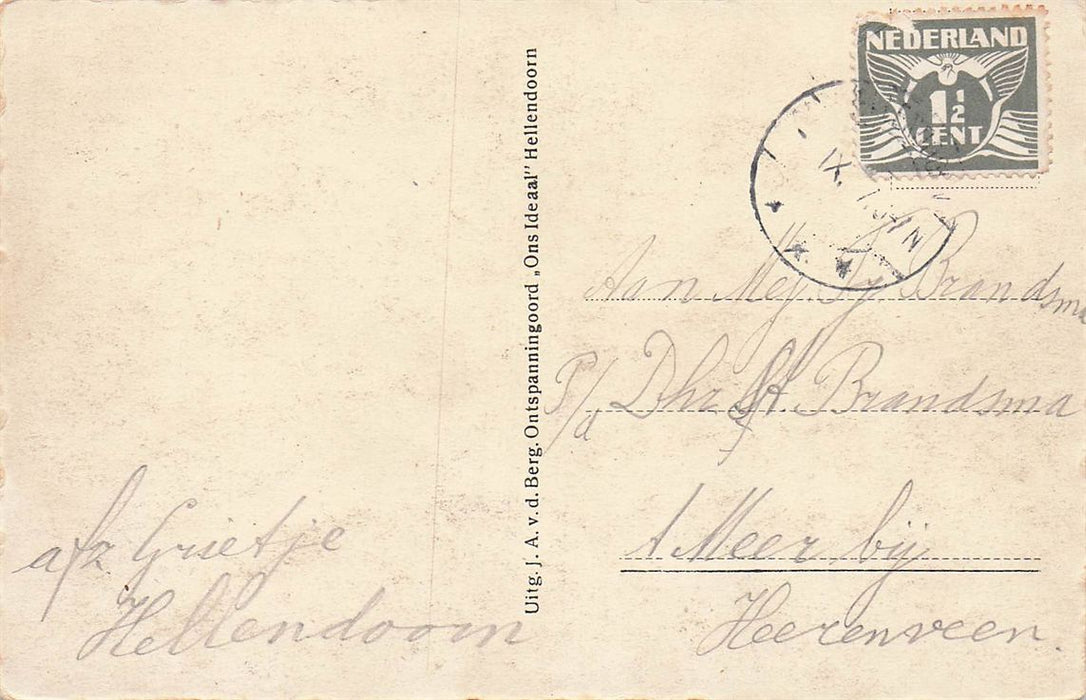 NEDERLAND
1½
CENT
IX.
Aan Mej. Sj Brandsma
P/a Dhr H. Brandsma
t Meer bij
Heerenveen
Uitg. J. A. v. d. Berg. Ontspanningoord „Ons Ideaal" Hellendoorn
afz Grietje
Hellendoorn